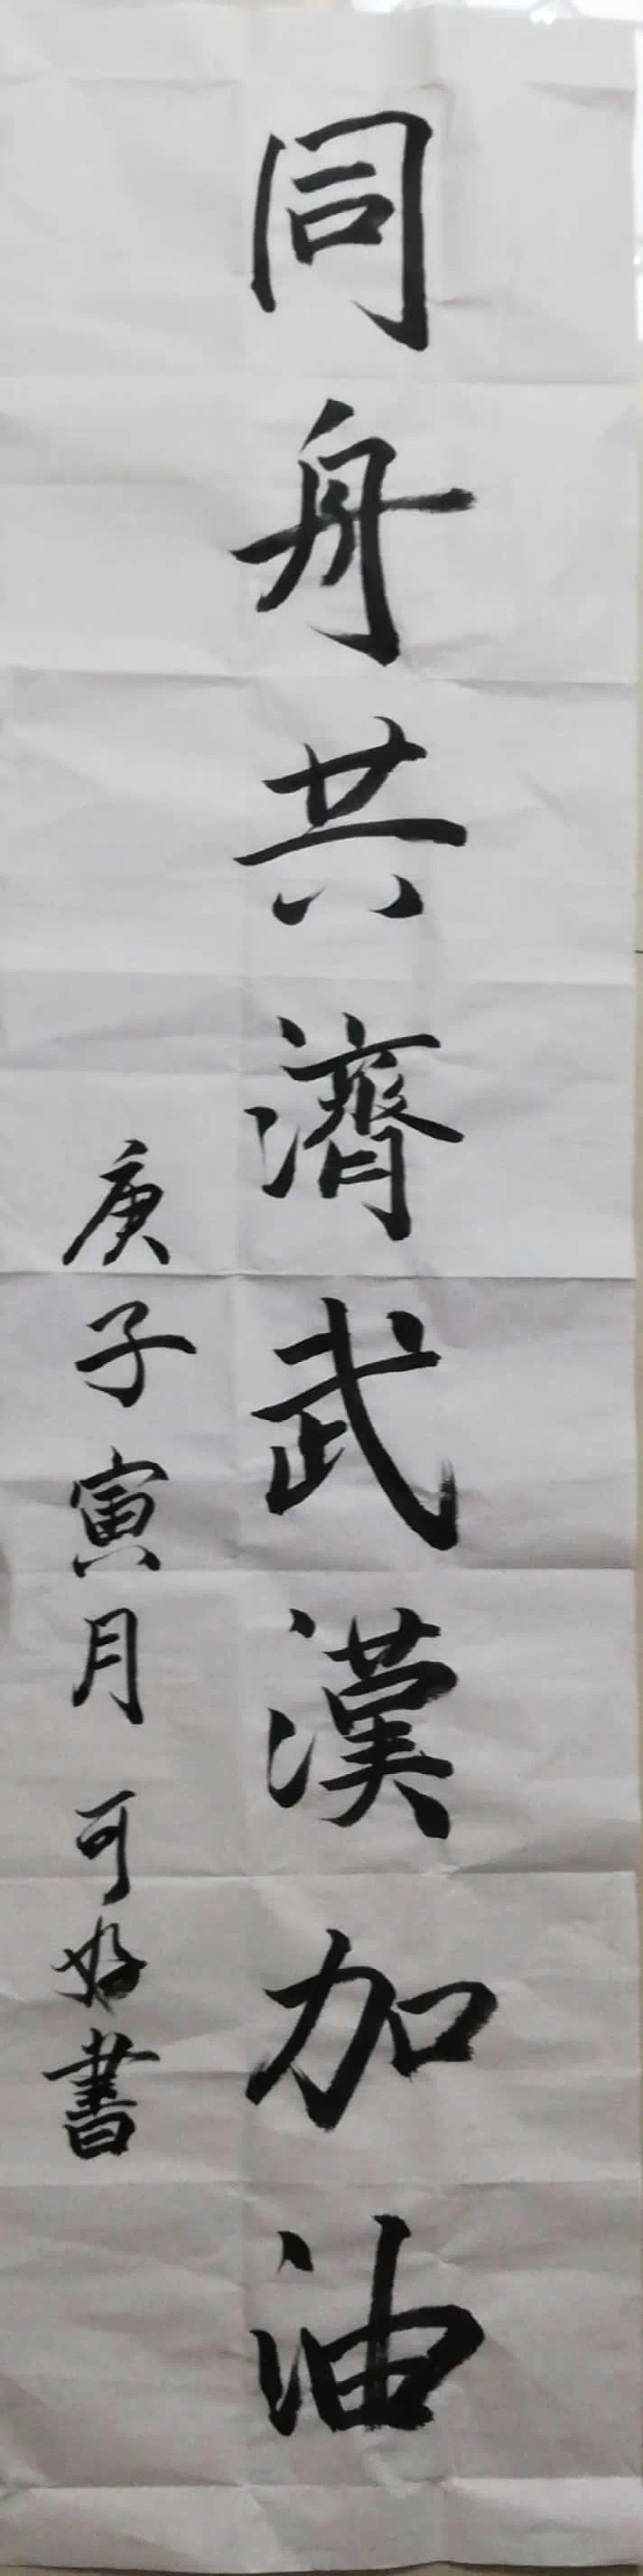 同舟共濟武漢加油
庚子寅月可好書